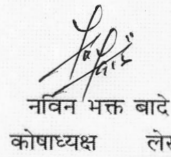 नविन भक्त बादे
कोषाध्यक्ष